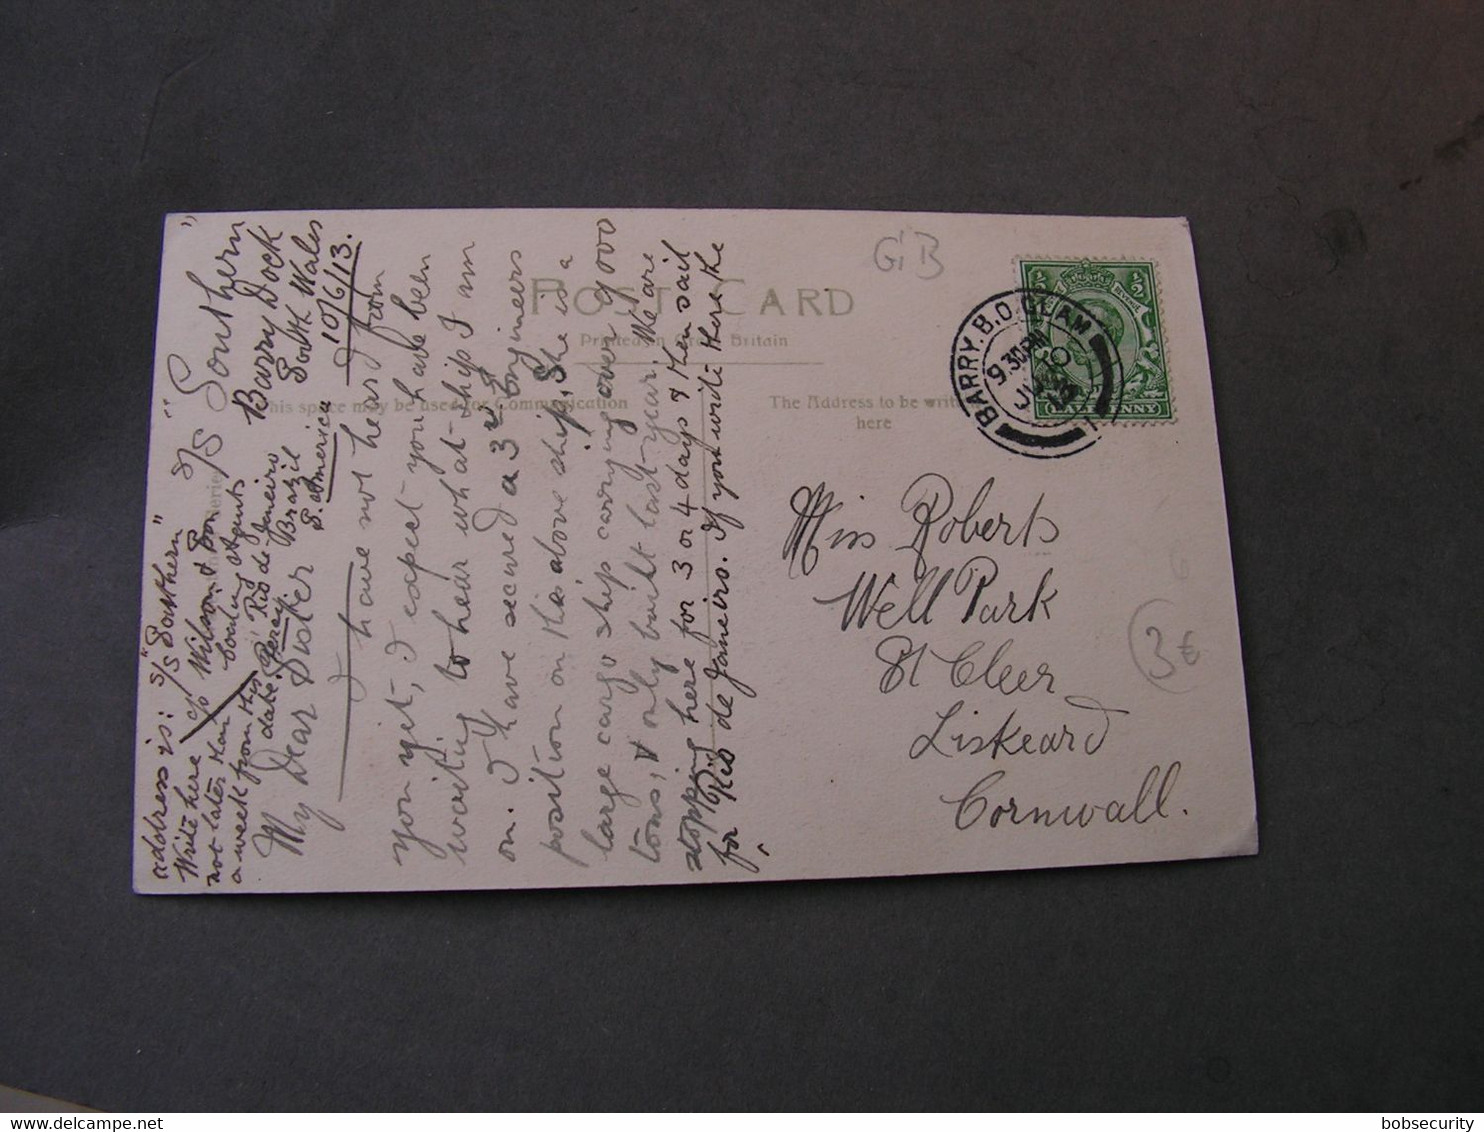 S/S "Southern"
Barry Dock
South Wales
10/6/13.
My Dear Sister
I have not heard from
you yet, I expect you have been
waiting to hear what ship I am
on. I have secured a 3rd Engineers
position on the above ship, She is a
large cargo ship carrying over 9000
tons, & only built last year. We are
stopping here for 3 or 4 days & then sail
for Rio de Janeiro. If you write there the
address is: S/S "Southern"
c/o Wilson & Son
Coaling Agents
Rio de Janeiro
Brazil
S. America
Write here
not later than
a week from this
date. Percy
POST CARD
Printed in Great Britain
This space may be used for Communication
The Address to be writ
here
BARRY. B.O. GLAM
9.30PM
JU 10
13
HALFPENNY
½ ½
GB
Miss Roberts
Well Park
St Cleer
Liskeard
Cornwall.
3€
bobsecurity